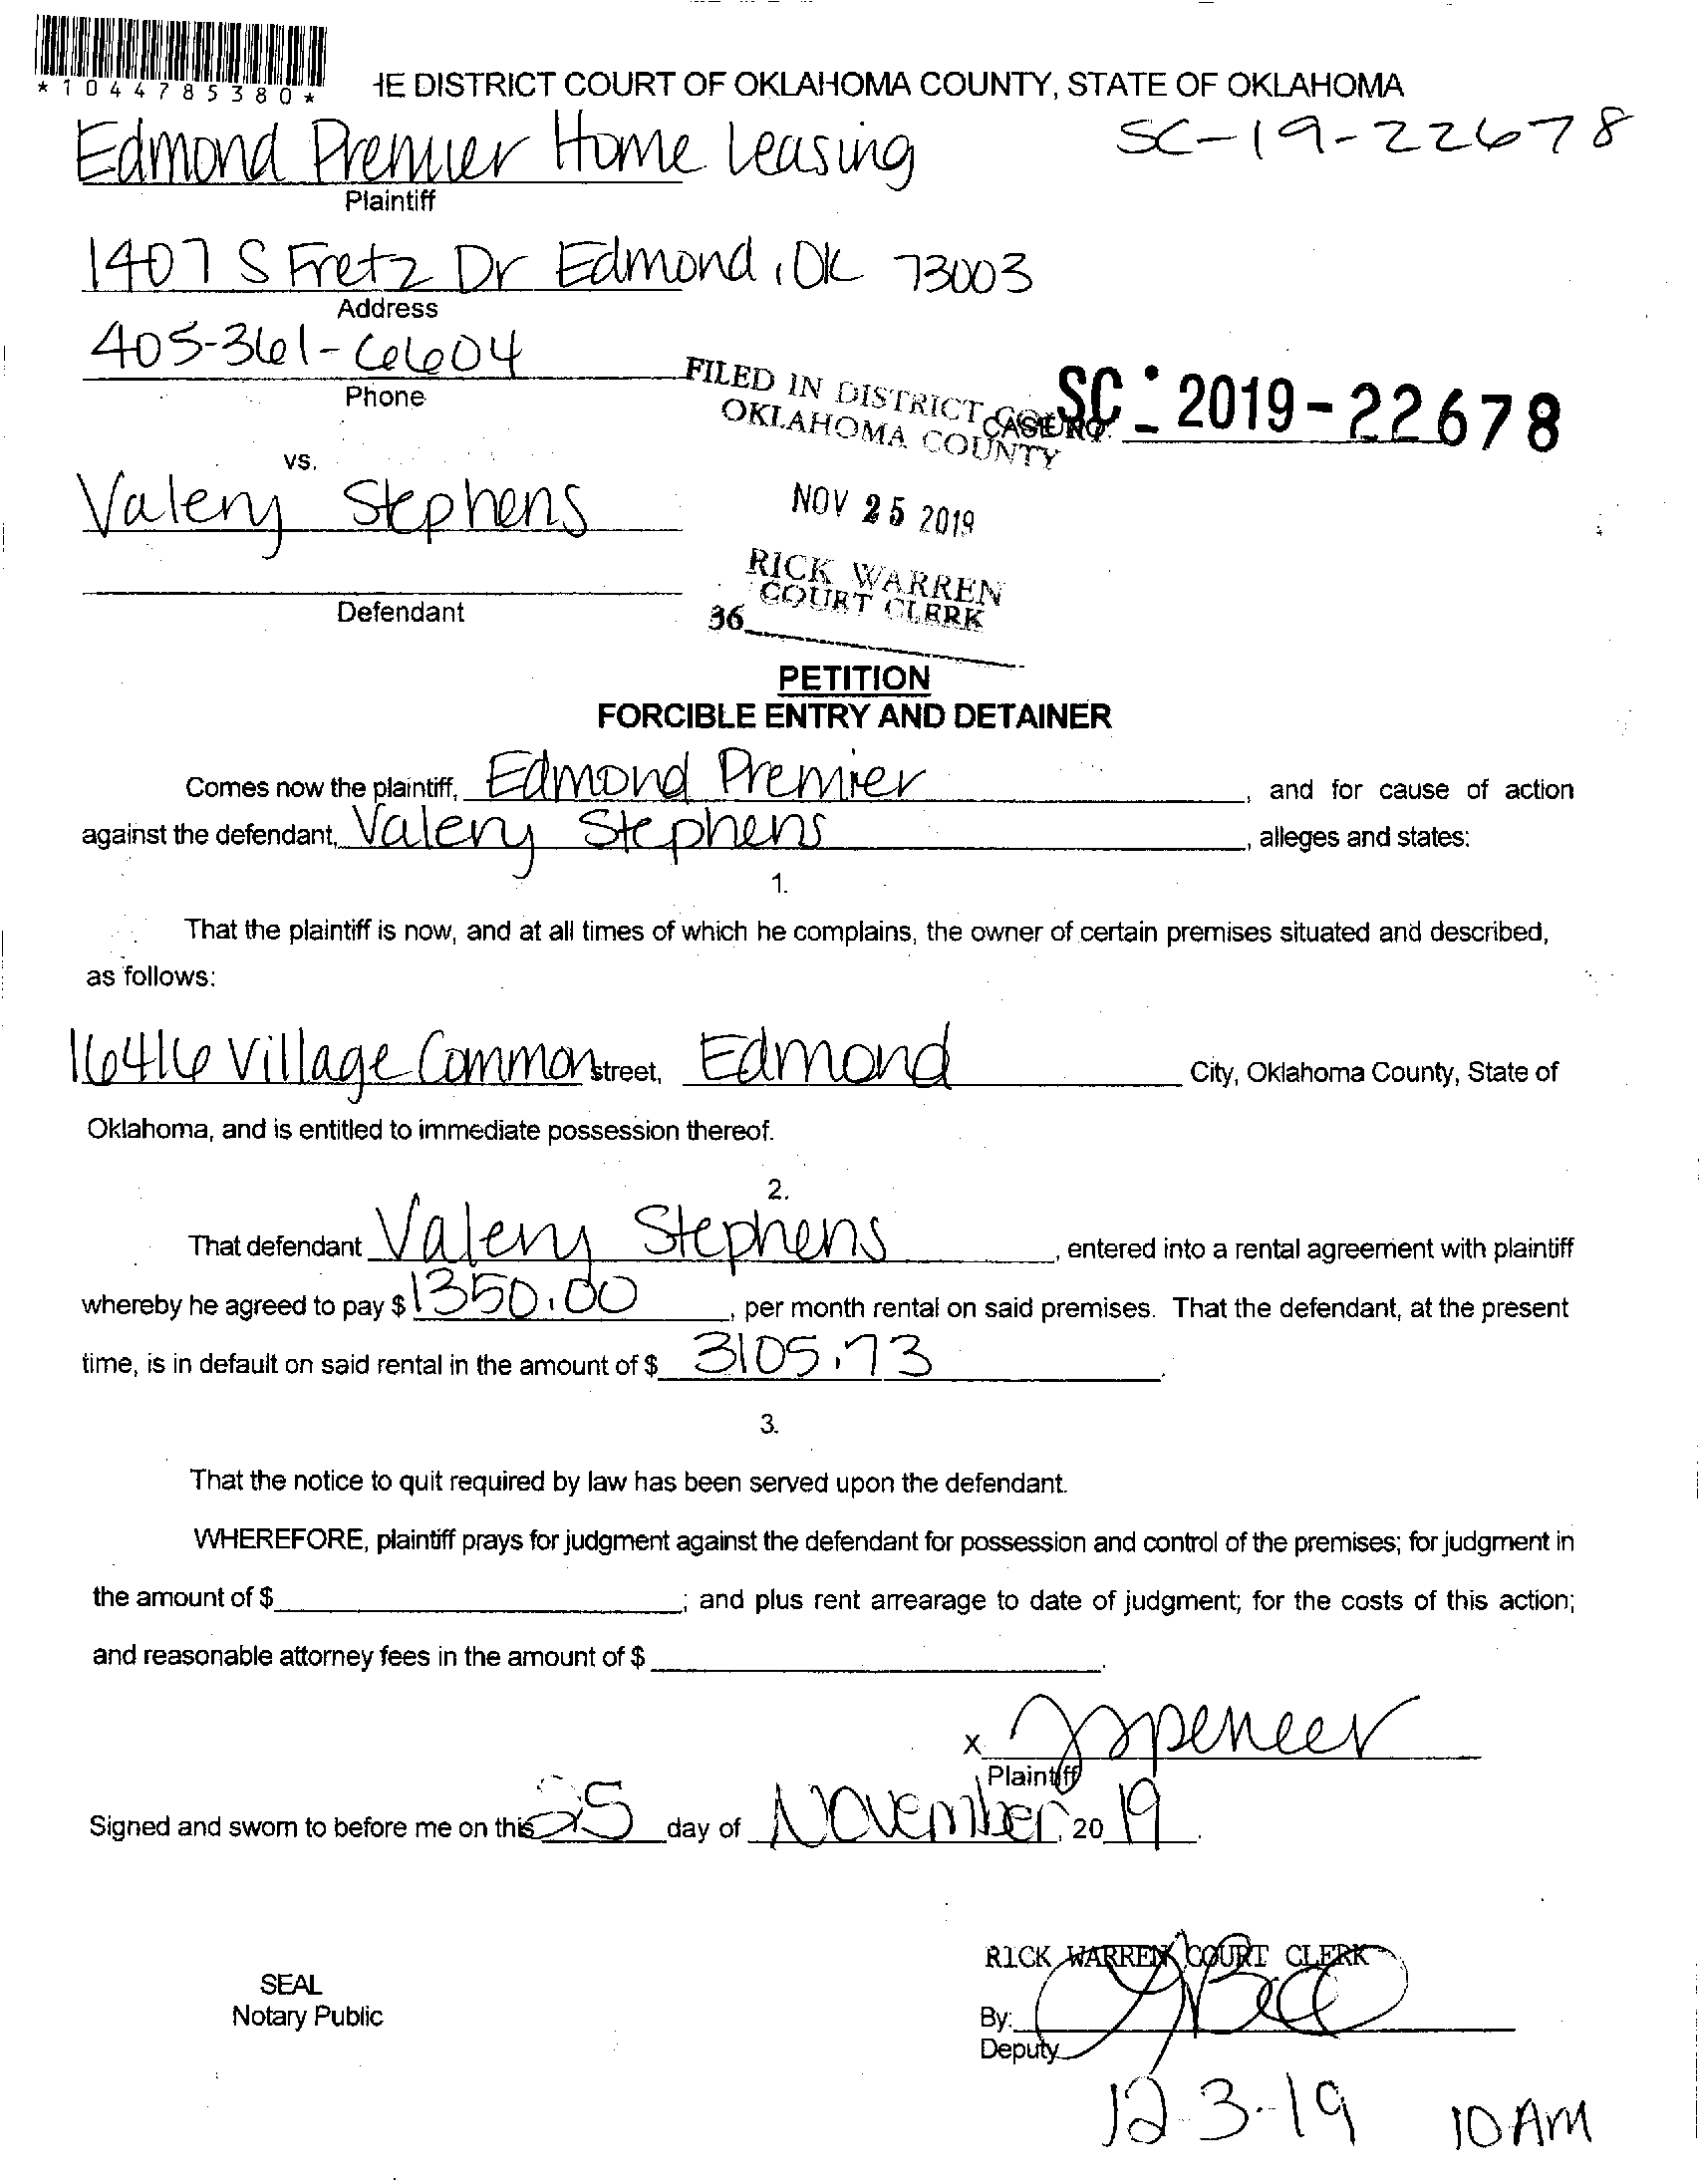 *1044785380*
HE DISTRICT COURT OF OKLAHOMA COUNTY, STATE OF OKLAHOMA
Edmond Premier Home Leasing
SC-19-22678
Plaintiff
1407 S Fretz Dr Edmond, OK 73003
Address
405-361-6604
Phone
FILED IN DISTRICT COURT
OKLAHOMA COUNTY
CASE NO. SC - 2019-22678
vs.
Valery Stephens
NOV 25 2019
RICK WARREN
COURT CLERK
Defendant
36
PETITION
FORCIBLE ENTRY AND DETAINER
Comes now the plaintiff, Edmond Premier, and for cause of action
against the defendant, Valery Stephens, alleges and states:
1.
That the plaintiff is now, and at all times of which he complains, the owner of certain premises situated and described,
as follows:
16416 Village Common street, Edmond City, Oklahoma County, State of
Oklahoma, and is entitled to immediate possession thereof.
2.
That defendant Valery Stephens, entered into a rental agreement with plaintiff
whereby he agreed to pay $ 1350.00, per month rental on said premises. That the defendant, at the present
time, is in default on said rental in the amount of $ 3105.73.
3.
That the notice to quit required by law has been served upon the defendant.
WHEREFORE, plaintiff prays for judgment against the defendant for possession and control of the premises; for judgment in
the amount of $ ; and plus rent arrearage to date of judgment; for the costs of this action;
and reasonable attorney fees in the amount of $ .
X JSpencer
Plaintiff
Signed and sworn to before me on this 25 day of November, 20 19.
RICK WARREN COURT CLERK
SEAL
Notary Public
By:
Deputy
12-3-19 10 AM